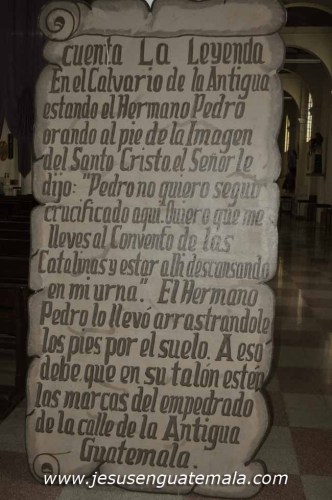 cuenta La Leyenda
En el Calvario de la Antigua
estando el Hermano Pedro
orando al pie de la Imagen
del Santo Cristo, el Señor le
dijo: "Pedro no quiero seguir
crucificado aqui. Quiero que me
lleves al Convento de las
Catalinas y estar alli descansando
en mi urna". El Hermano
Pedro lo llevó arrastrandole
los pies por el suelo. A eso
debe, que en su talón estén
las marcas del empedrado
de la calle de la Antigua
Guatemala.
www.jesusenguatemala.com